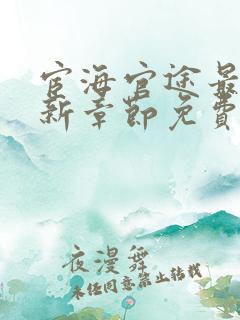 宦海官途最
新章节免费
夜漫舞
未经同意禁止转载